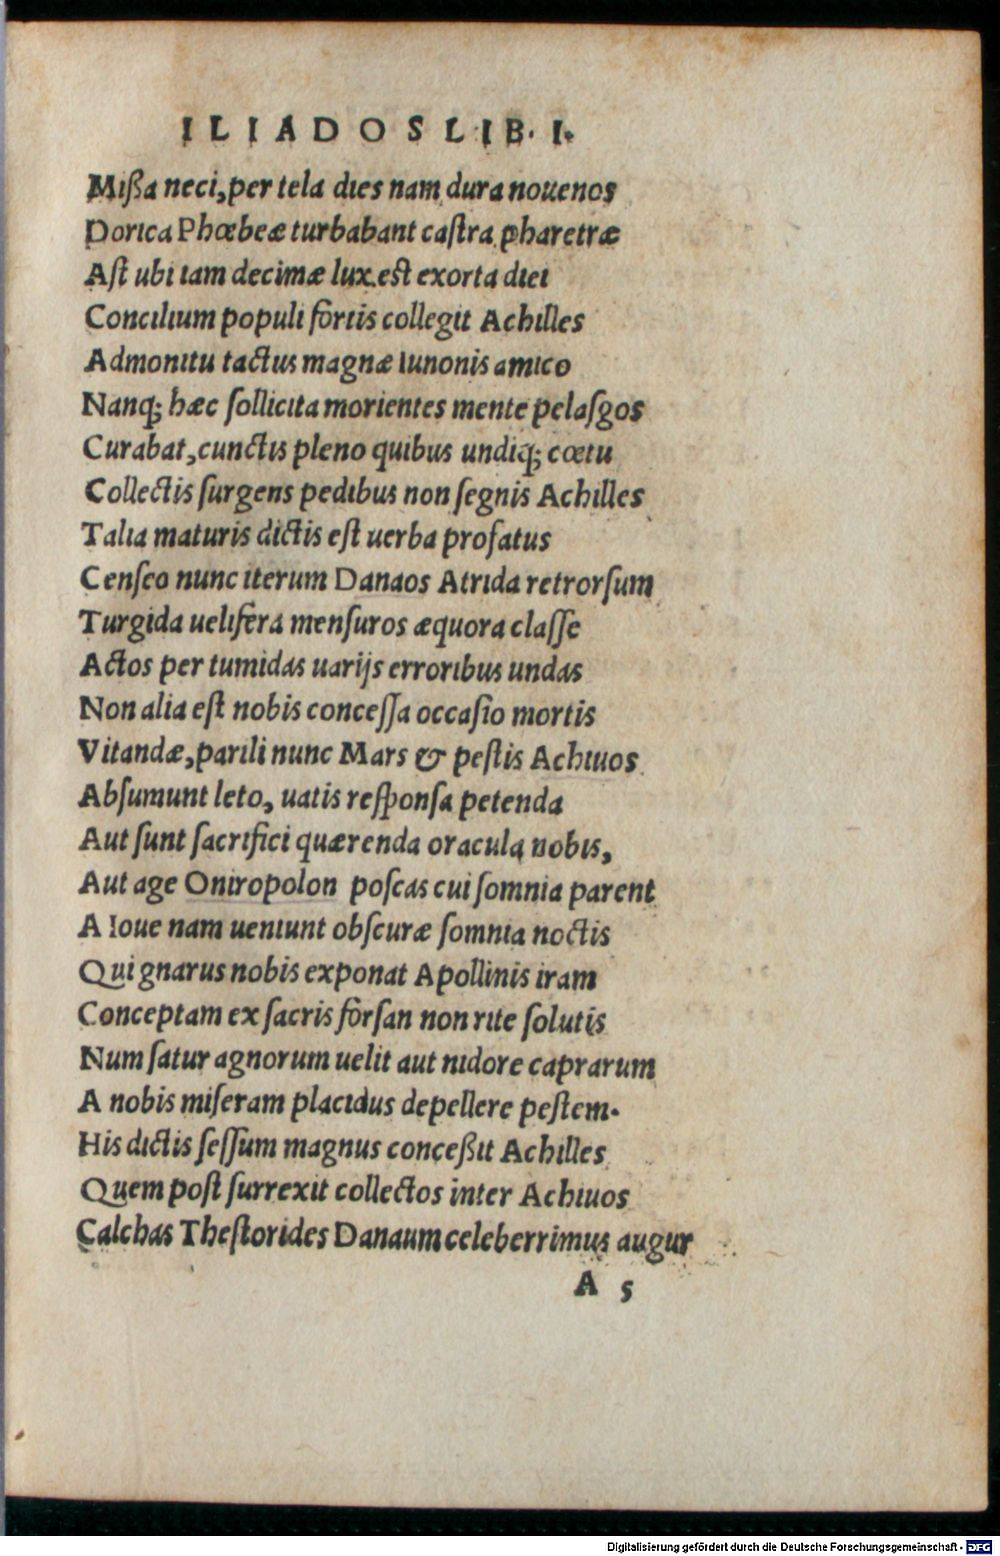 ILIADOS LIB. I.
Mißa neci, per tela dies nam dura nouenos
Dorica Phœbeæ turbabant caſtra pharetræ
Aſt ubi iam decimæ lux eſt exorta diei
Concilium populi fortis collegit Achilles
Admonitu tactus magnæ Iunonis amico
Nanq; hæc ſollicita morientes mente pelaſgos
Curabat, cunctis pleno quibus undiq; cœtu
Collectis ſurgens pedibus non ſegnis Achilles
Talia maturis dictis eſt uerba profatus
Cenſeo nunc iterum Danaos Atrida retrorſum
Turgida uelifera menſuros æquora claſſe
Actos per tumidas uarijs erroribus undas
Non alia eſt nobis conceſſa occaſio mortis
Vitandæ, parili nunc Mars & peſtis Achiuos
Abſumunt leto, uatis reſponſa petenda
Aut ſunt ſacrifici quærenda oracula nobis,
Aut age Oniropolon poſcas cui ſomnia parent
A Ioue nam ueniunt obſcuræ ſomnia noctis
Qui gnarus nobis exponat Apollinis iram
Conceptam ex ſacris forſan non rite ſolutis
Num ſatur agnorum uelit aut nidore caprarum
A nobis miſeram placidus depellere peſtem.
His dictis ſeſſum magnus conceßit Achilles
Quem poſt ſurrexit collectos inter Achiuos
Calchas Theſtorides Danaum celeberrimus augur
A 5
Digitalisierung gefördert durch die Deutsche Forschungsgemeinschaft - DFG